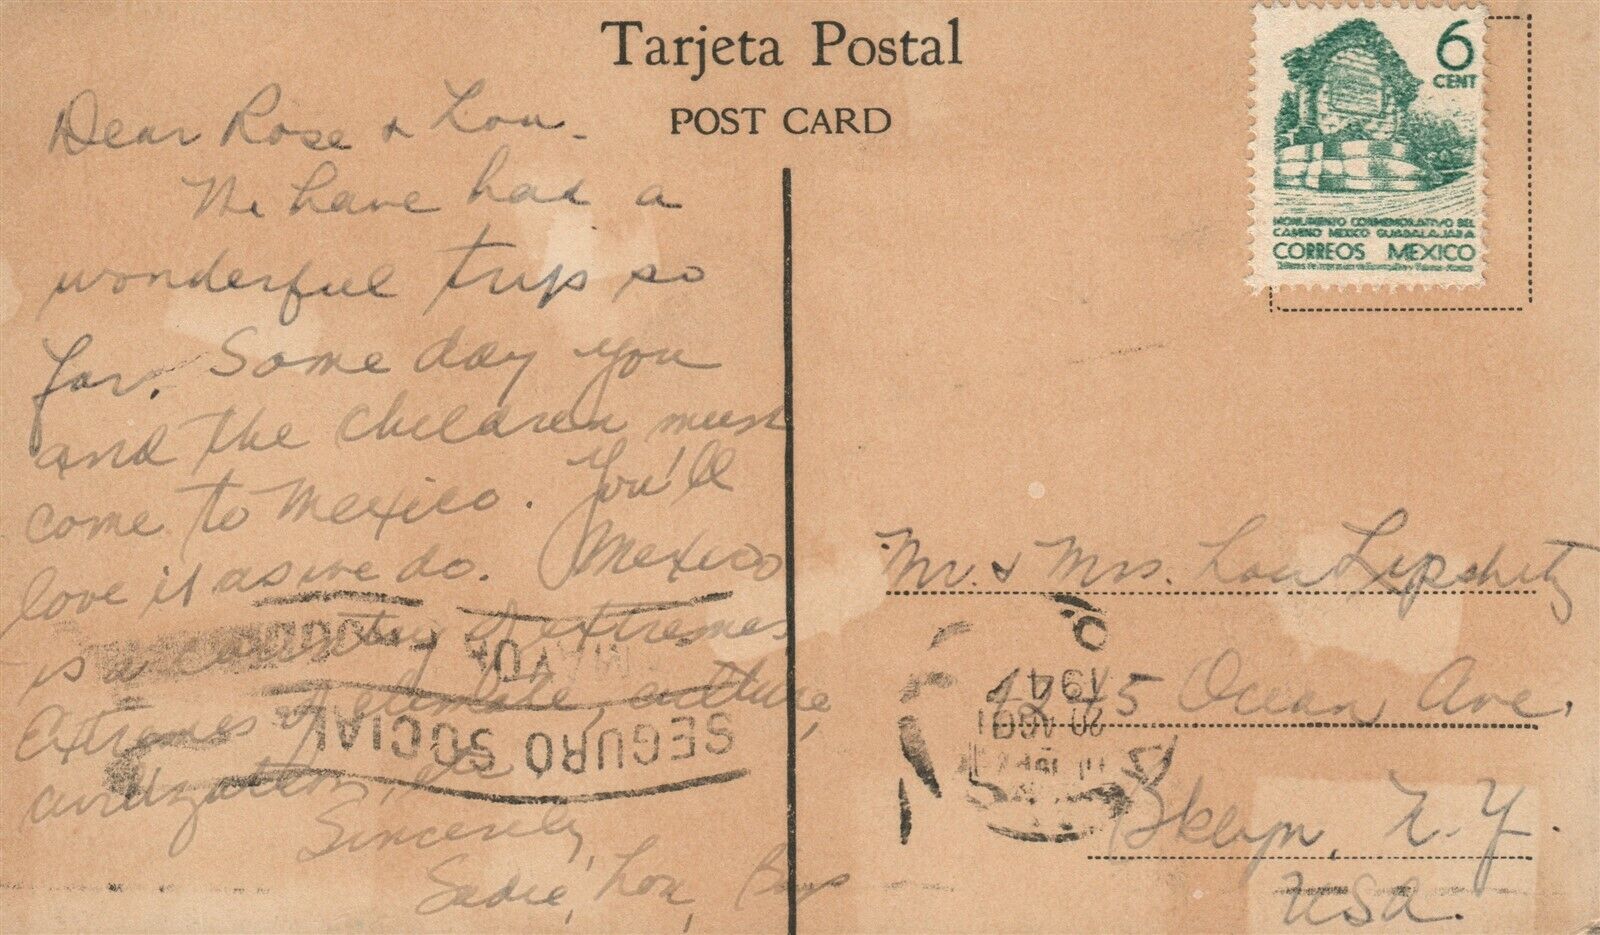 Tarjeta Postal
POST CARD
Dear Rose & Lou -
We have had a
wonderful trip so
far. Some day you
and the children must
come to Mexico. You'll
love it as we do. Mexico
is a country of extremes
Extremes of climate, culture,
civilization, etc
Sincerely,
Sadie, Lou, Boys
6
CENT
MONUMENTO CONMEMORATIVO DEL
CAMINO MEXICO GUADALAJARA
CORREOS MEXICO
Mr. & Mrs. Lou Lipshitz
1245 Ocean Ave.
Bklyn, N.Y.
USA.
SEGURO SOCIAL
20 AGO
1947